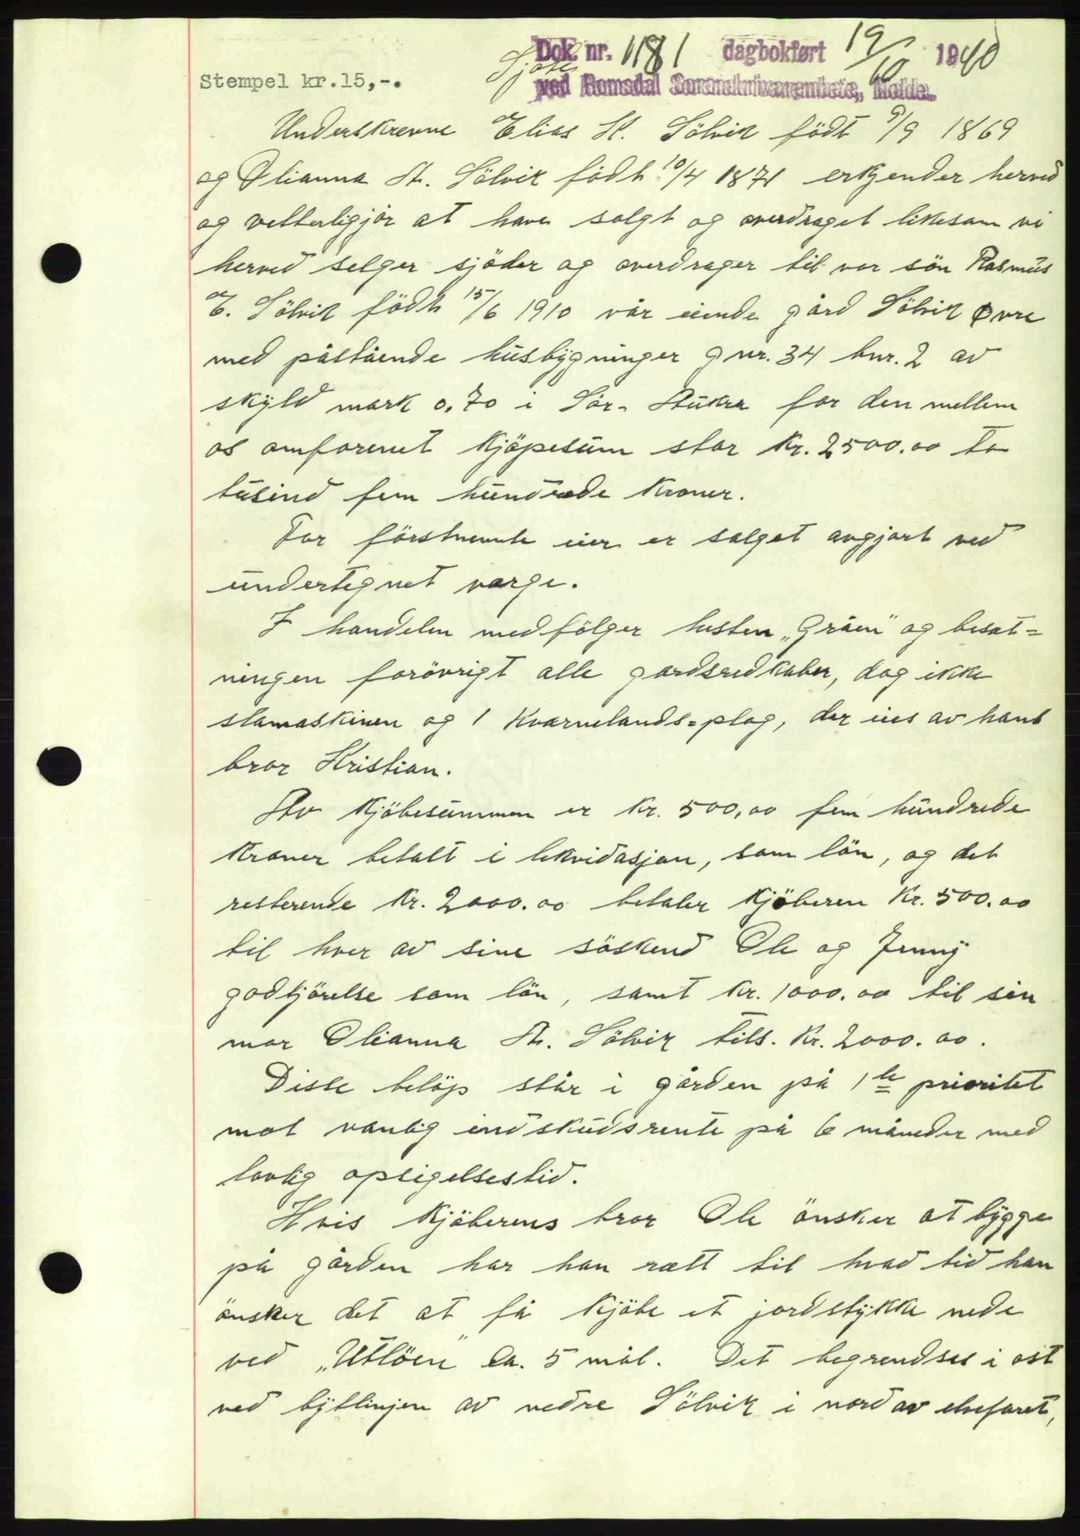 Dok. nr. 1181 dagbokført 19/10 1940
ved Romsdal Sorenskriverembete, Molde.
Stempel kr.15,-.
Underskrevne Elias H. Sölvik födt 9/9 1869
og Olianna A. Sölvik födt 10/4 1871 erkjender herved
og vetterligjör at have solgt og overdraget likesom vi
herved selger sjöder og overdrager til vor sön Rasmus
E. Sölvik födt 15/6 1910 vår eiende gård Sölvik Øvre
med påstående husbygninger gnr. 34 bnr. 2 av
skyld mark 0.70 i Sör-Aukra for den mellem
os omforenet kjöpesum stor kr. 2500.00 to
tusind fem hundrede kroner.
For förstnevnte eier er salget avgjort ved
undertegnet verge.
I handelen medfölger hesten „Gråen" og besæt-
ningen forövrigt alle gardsredkaber, dog ikke
slamaskinen og 1 Kvarnelands-plog, der eies av hans
bror Kristian.
Av kjöbesummen er kr. 500,00 fem hundrede
kroner betalt i likvidasjon, som lön, og det
resterende kr. 2000.00 betaler kjöberen kr. 500.00
til hver av sine söskend Ole og Jenny
godtjörelse som lön, samt kr. 1000.00 til sin
mor Olianna A. Sölvik tils. kr. 2000.00.
Disse belöp står i gården på 1ste prioritet
mot vanlig indskudsrente på 6 måneder med
lovlig opsigelsestid.
Hvis kjöberens bror Ole önsker at bygge
på gården har han rætt til hvad tid han
önsker det at få kjöbe et jordstykke nede
ved „Utlöen" ca. 5 mål. Det begrendses i ost
ved bytlinjen av nedre Sölvik i nord av elvefaret,